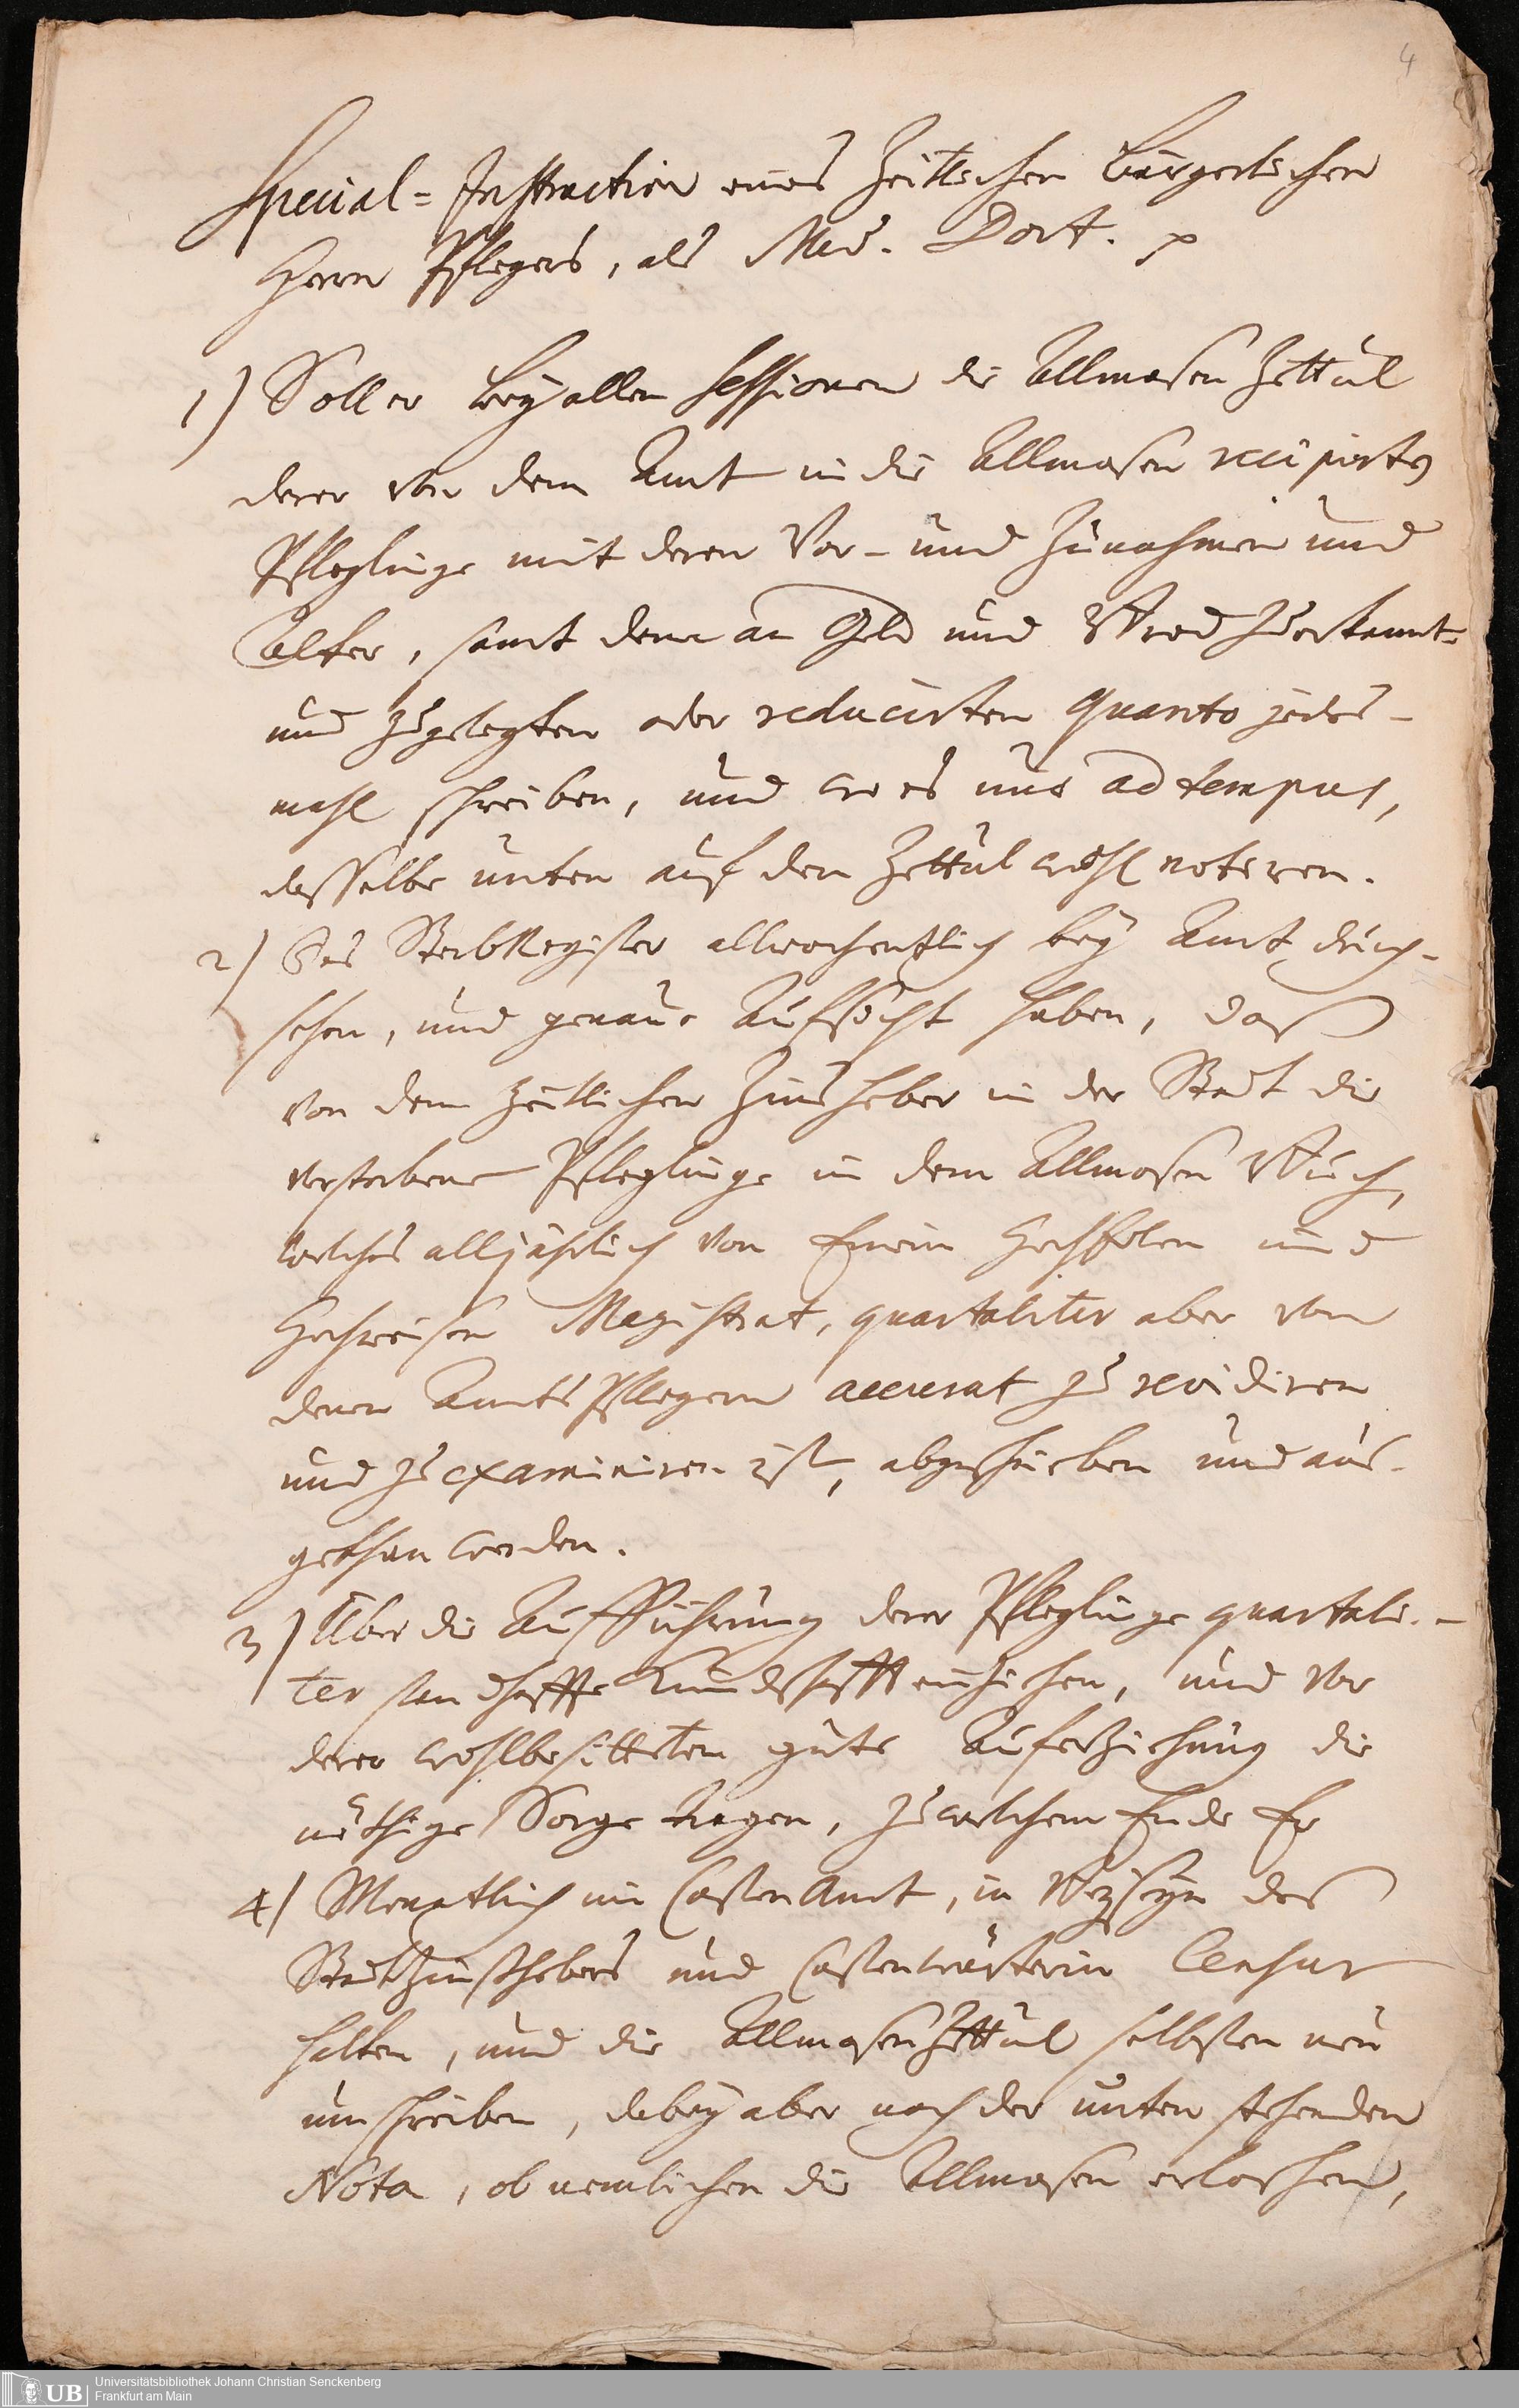 4
Special-Instruction eines Zeitlichen Bürgerlichen
Herrn Pflegers, als Med. Doct. p
1) Soll er bey allen Sessionen die Allmosen Zettul
derer von dem Amt in die Allmosen recipirten
Pfleglinge mit deren Vor- und Zunahmen und
Alter, samt dem an Geld und Brod zuerkannt-
und zugelegten oder reducirten quanto jedes-
mahl schreiben, und wo es nur ad tempus,
dasselbe unten auf den Zettul wohl notiren.
2) Das SterbRegister allwochentlich bey Amt durch-
sehen, und genaue Aufsicht haben, daß
von dem Zeitlichen Zinsheber in der Stadt die
verstorbene Pfleglinge in dem Allmosen Buch,
welches alljährlich von Einem HochEdlen und
Hochweisen Magistrat, quartaliter aber von
denen Amts Pflegern accurat zu revidiren
und zu examiniren ist, abgeschrieben und aus-
gethan werden.
3) Über die Aufführung derer Pfleglinge quartali-
ter standhaffte Kundschafft einziehen, und vor
derer wohlbesitteten gute Auferziehung die
nöthige Sorge tragen, zu welchem Ende Er
4) Monatlich im CastenAmt, in Beyseyn des
Stadtzinßhebers und Castenwärterin Censur
halten, und die AllmosenZettul selbsten neu
umschreiben, dabey aber nach der unten stehenden
Nota, ob nemlichen die Allmosen erloschen,
UB
Universitätsbibliothek Johann Christian Senckenberg
Frankfurt am Main